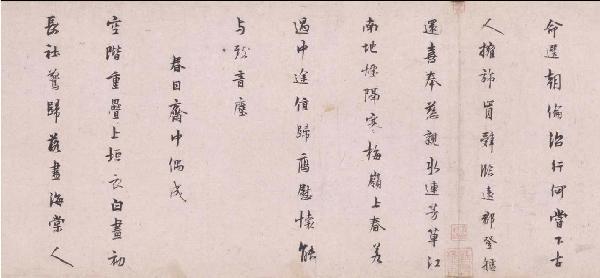 命選朝倫治行何嘗下古
人擁旆肯辭臨遠郡登艫
還喜奉慈親水連芳草江
南地煙隔寒梅嶺上春若
遇中途值歸鴈慰懷能
与致音塵
春日齋中偶成
空階重疊上垣衣白晝初
長社鷰歸落盡海棠人